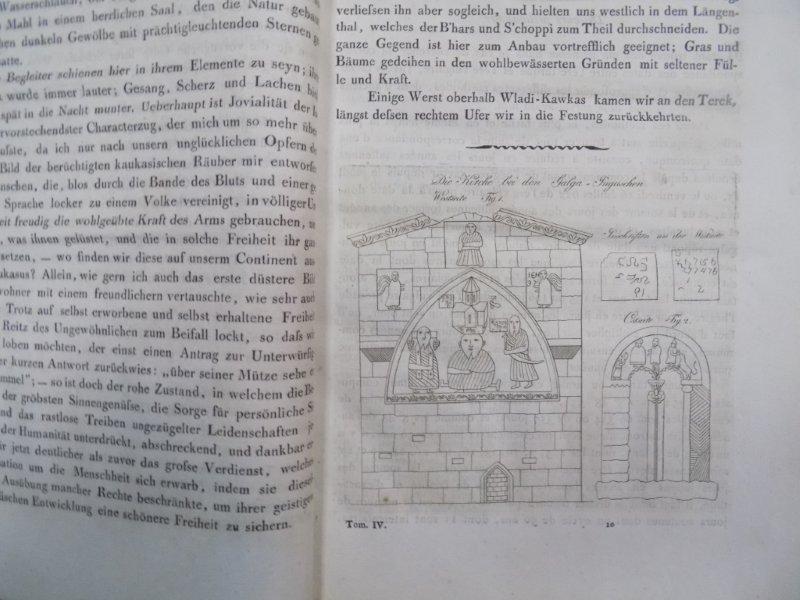 Wasserschlauch,
Mahl in einem herrlichen Saal, den die Natur gebau
dunkeln Gewölbe mit prächtigleuchtenden Sternen
hatte.
Begleiter schienen hier in ihrem Elemente zu seyn;
wurde immer lauter; Gesang, Scherz und Lachen
spät in die Nacht munter. Ueberhaupt ist Jovialität der
rvorstechendster Characterzug, der mich um so mehr über
ufste, da ich nur nach unsern unglücklichen Opfern
Bild der berüchtigten kaukasischen Räuber mir entworfe
nschen, die, blos durch die Bande des Bluts und einer
Sprache locker zu einem Volke vereinigt, in völliger
eit freudig die wohlgeübte Kraft des Arms gebrauchen,
was ihnen gelüstet, und die in solche Freiheit ihr
setzen, — wo finden wir diese auf unserm Continent
ukasus? Allein, wie gern ich auch das erste düstere Bi
wohner mit einem freundlichern vertauschte, wie sehr auch
Trotz auf selbst erworbene und selbst erhaltene Freihei
Reitz des Ungewöhnlichen zum Beifall lockt, so dafs
loben möchten, der einst einen Antrag zur Unterwürfig
er kurzen Antwort zurückwies: „über seiner Mütze sehe
mmel"; — so ist doch der rohe Zustand, in welchem die
der gröbsten Sinnengenüfse, die Sorge für persönliche S
nd das rastlose Treiben ungezügelter Leidenschaften
der Humanität unterdrückt, abschreckend, und dankbar
ir jetzt deutlicher als zuvor das grofse Verdienst, welche
sation um die Menschheit sich erwarb, indem sie diese
Ausübung mancher Rechte beschränkte, um ihrer geistigen
ischen Entwicklung eine schönere Freiheit zu sichern.
verliefsen ihn aber sogleich, und hielten uns westlich in dem Längen-
thal, welches der B'hars und S'choppi zum Theil durchschneiden. Die
ganze Gegend ist hier zum Anbau vortrefflich geeignet; Gras und
Bäume gedeihen in den wohlbewässerten Gründen mit seltener Fül-
le und Kraft.
Einige Werst oberhalb Wladi-Kawkas kamen wir an den Terek,
längst defsen rechtem Ufer wir in die Festung zurückkehrten.
Die Kirche bei den Galga-Inguschen
Westseite Fig. 1.
Inschriften an der Westseite
Ostseite Fig. 2.
Tom. IV.
10